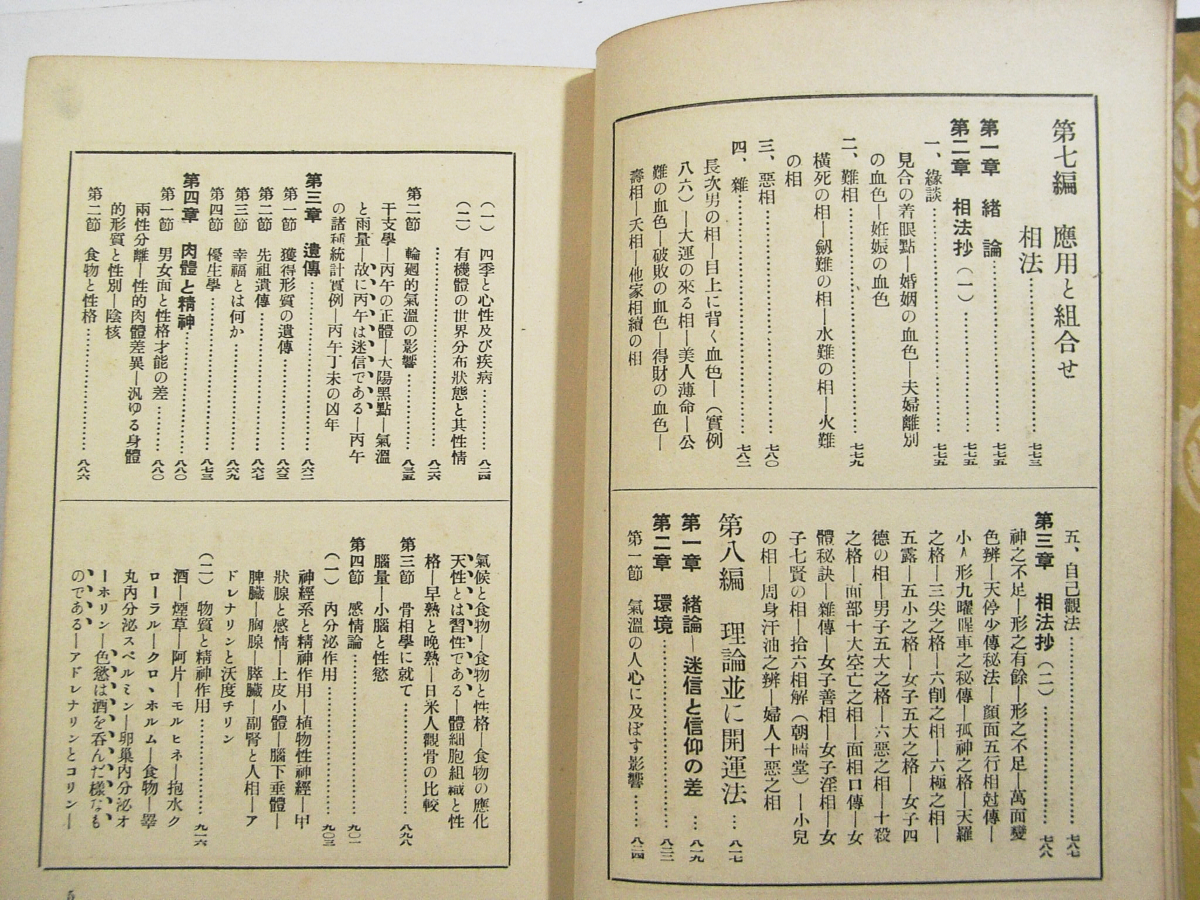 第七編 應用と組合せ
相法……七七三
第一章 緒論……七七五
第二章 相法抄(一)……七七五
一、緣談……七七五
見合の着眼點—婚姻の血色—夫婦離別
の血色—姙娠の血色
二、難相……七七九
橫死の相—劔難の相—水難の相—火難
の相
三、惡相……七八〇
四、雜……七八二
長次男の相—目上に背く血色—(實例
八六)—大運の來る相—美人薄命—公
難の血色—破敗の血色—得財の血色—
壽相—夭相—他家相續の相
五、自己觀法……七八七
第三章 相法抄(二)……七八八
神之不足—形之有餘—形之不足—萬面變
色辨—天停少傳秘法—顏面五行相尅傳—
小人形九曜睲車之秘傳—孤神之格—天羅
之格—三尖之格—六削之相—六極之相—
五露—五小之格—女子五大之格—女子四
德の相—男子五大之格—六惡之相—十殺
之格—面部十大空亡之相—面相口傳—女
體秘訣—雜傳—女子善相—女子淫相—女
子七賢の相—拾六相解(朝晴堂)—小兒
の相—周身汗油之辨—婦人十惡之相
第八編 理論並に開運法…八一七
第一章 緒論—迷信と信仰の差…八一九
第二章 環境……八二三
第一節 氣溫の人心に及ぼす影響……八二四
(一) 四季と心性及び疾病……八二四
(二) 有機體の世界分布狀態と其性情
……八二六
第二節 輪廻的氣溫の影響……八三五
干支學—丙午の正體—太陽黑點—氣溫
と雨量—故に丙午は迷信である—丙午
の諸種統計實例—丙午丁未の凶年
第三章 遺傳……八六二
第一節 獲得形質の遺傳……八六三
第二節 先祖遺傳……八六七
第三節 幸福とは何か……八六九
第四節 優生學……八七三
第四章 肉體と精神……八八〇
第一節 男女面と性格才能の差……八八〇
兩性分離—性的肉體差異—汎ゆる身體
的形質と性別—陰核
第二節 食物と性格……八八六
氣候と食物—食物と性格—食物の應化
天性とは習性である—體細胞組織と性
格—早熟と晚熟—日米人觀骨の比較
第三節 骨相學に就て……八九八
腦量—小腦と性慾
第四節 感情論……九〇一
(一) 內分泌作用……九〇三
神經系と精神作用—植物性神經—甲
狀腺と感情—上皮小體—腦下垂體—
脾臟—胸腺—膵臟—副腎と人相—ア
ドレナリンと沃度チリン
(二) 物質と精神作用……九一六
酒—煙草—阿片—モルヒネ—抱水ク
ローラル—クロヽホルム—食物—睪
丸內分泌スペルミン—卵巢內分泌オ
ーホリン—色慾は酒を呑んだ樣なも
のである—アドレナリンとコリン—
5